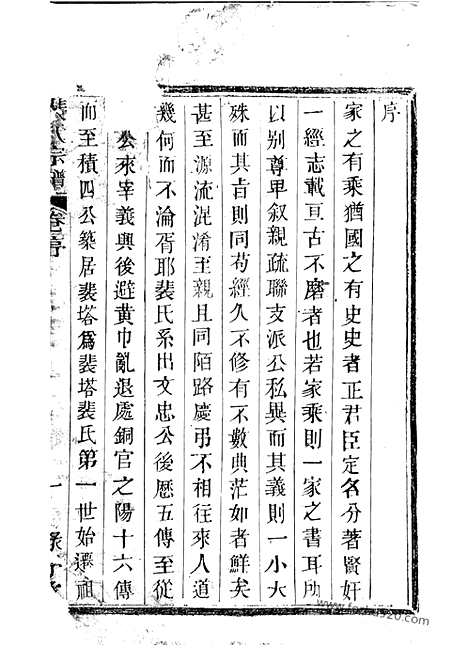 序
家之有乘猶國之有史史者正君臣定名分著賢奸
一經志載亘古不磨者也若家乘則一家之書耳所
以别尊卑叙親疏聯支派公私異而其義則一小大
殊而其旨則同苟經久不修有不數典茫如者鮮矣
甚至源流混淆至親且同陌路慶弔不相往來人道
幾何而不淪胥耶裴氏系出文忠公後歷五傳至從
公來宰義興後避黃巾亂退處銅官之陽十六傳
而至積四公築居裴塔爲裴塔裴氏第一世始遷祖
裴氏宗譜 卷 序 一